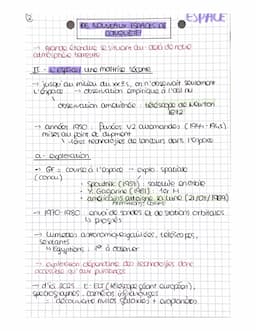 ESPACE
DE NOUVEAUX ESPACES DE
CONQUÊTE
→ Grande étendue se situant au-delà de notre
atmosphère terrestre
une maîtrise récente
→ jusqu'au milieu du on n'observait seulement
l'espace → observation empirique à l'œil nu
↳ observation améliorée : télescope de Newton
→ années 1930 : fusées V2 allemandes
mises au point et
↳ 1ères technologies de lanceurs dans l'espace
a - exploration
→ GF = course à l'espace → explo spatiale
(conqu)
• Spoutnik (1957) : satellite
• Y. Gagarine (1961) : 1er H
• américains la lune
→ 1970-1980 : envoi de sondes et de stations orbitales
↳ progrès
→ lunettes télescopes,
sextants
↳ Égyptiens : à observer
→ exploration dépendante des technologies donc
accessible qu'aux puissances
→ d'ici 2025 : E-ELT (télescope géant européen),
spectrographes, caméras
= découverte exoplanètes